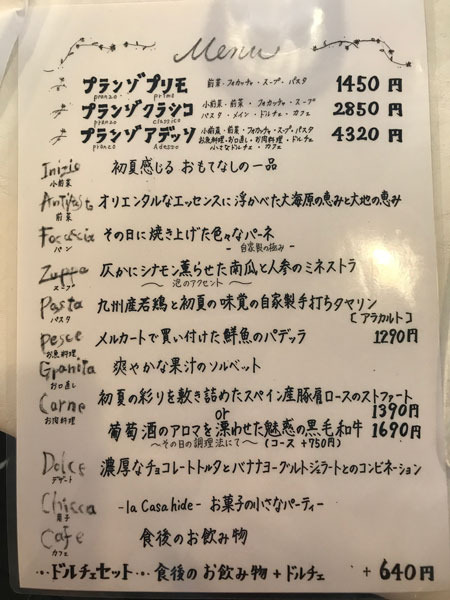 Menu
プランゾプリモ 前菜・フォカッチャ・スープ・パスタ 1450円
pranzo primo
プランゾクラシコ 小前菜・前菜・フォカッチャ・スープ パスタ・メイン・ドルチェ・カフェ 2850円
pranzo classico
プランゾアデッソ 小前菜・前菜・フォカッチャ・スープ・パスタ お魚料理・お口直し・お肉料理・ドルチェ 小さなドルチェ・カフェ 4320円
pranzo Adesso
Inizio 初夏感じる おもてなしの一品
小前菜
Antipast オリエンタルなエッセンスに浮かべた大海原の恵みと大地の恵み
前菜
Focaccia その日に焼き上げた色々なパーネ
パン - 自家製の極み -
Zuppa 仄かにシナモン薫らせた南瓜と人参のミネストラ
スープ ～泡のアクセント～
Pasta 九州産若鶏と初夏の味覚の自家製手打ちタヤリン
パスタ [アラカルト]
Pesce メルカートで買い付けた鮮魚のパデッラ 1290円
お魚料理
Granita 爽やかな果汁のソルベット
お口直し
Carne 初夏の彩りを敷き詰めたスペイン産豚肩ロースのストファート
お肉料理 or 1390円
葡萄酒のアロマを漂わせた魅惑の黒毛和牛 1690円
～その日の調理法にて～ (コース +750円)
Dolce 濃厚なチョコレートトルタとバナナヨーグルトジェラートとのコンビネーション
デザート
Chicca -la Casa hide- お菓子の小さなパーティー
菓子
Cafe 食後のお飲み物
カフェ
・・・ドルチェセット・・・食後のお飲み物+ドルチェ +640円